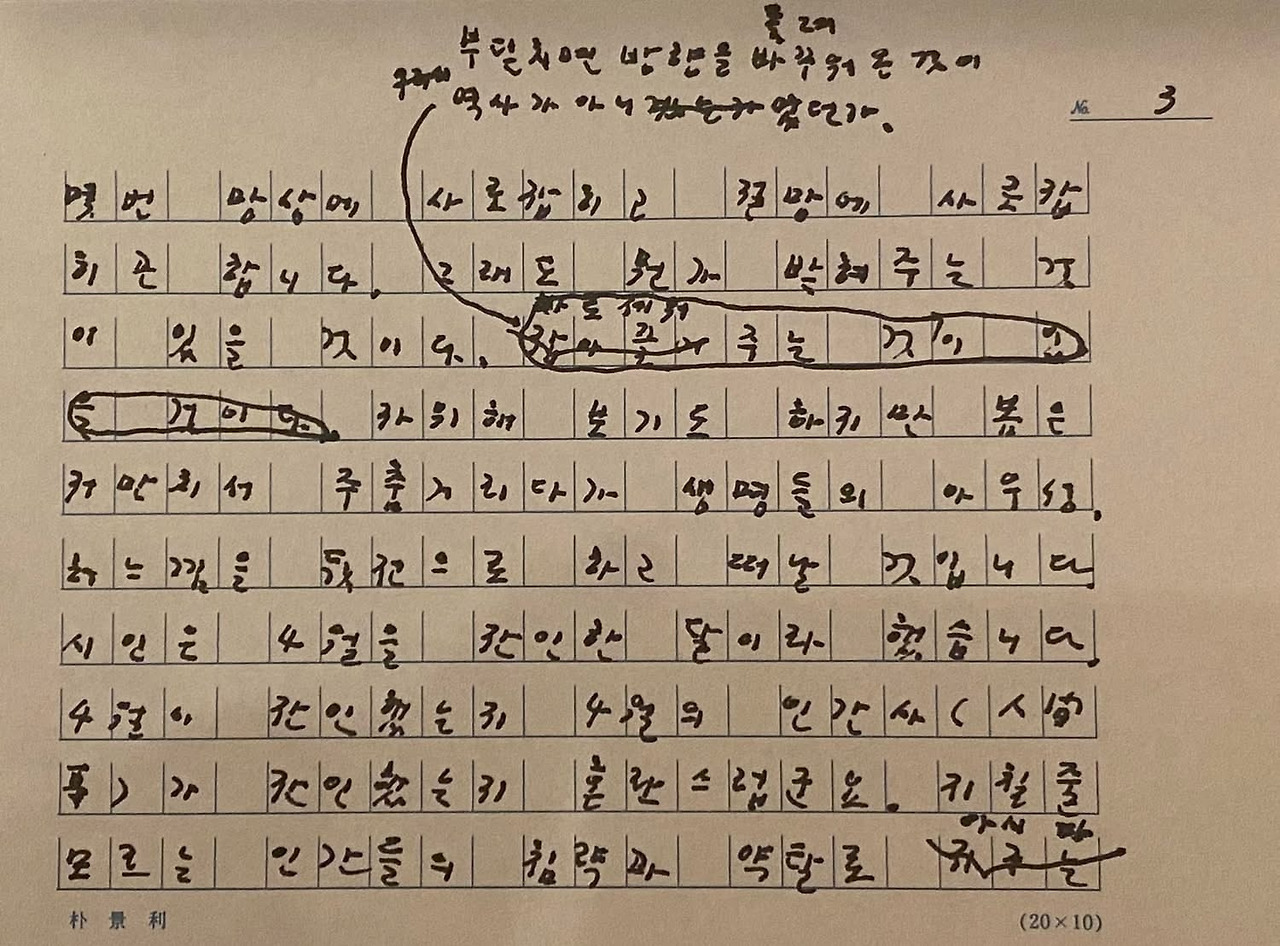 틀려
부딪치면 방향을 바꾸워 온 것이
우리의 역사가 아니 었던가.
No. 3
몇번 망상에 사로잡히고 절망에 사로잡
히곤 합니다. 그래도 뭔가 받혀주는 것
이 있을 것이다.
바로 세워
잡아 주는 것이 있
을 것이다. 자위해 보기도 하지만 봄은
저만치서 주춤거리다가 생명들의 아우성,
흐느낌을 뒷전으로 하고 떠날 것입니다.
시인은 4월을 잔인한 달이라 했습니다.
4월이 잔인했는지 4월의 인간사(人間
事)가 잔인했는지 혼란스럽군요. 지칠줄
모르는 인간들의 침략과 약탈로
朴景利
(20×10)